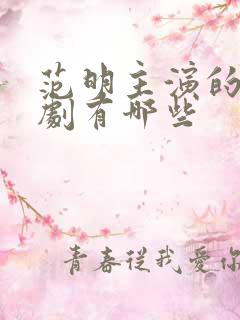 范明主演的
劇有哪些
青春從我愛你